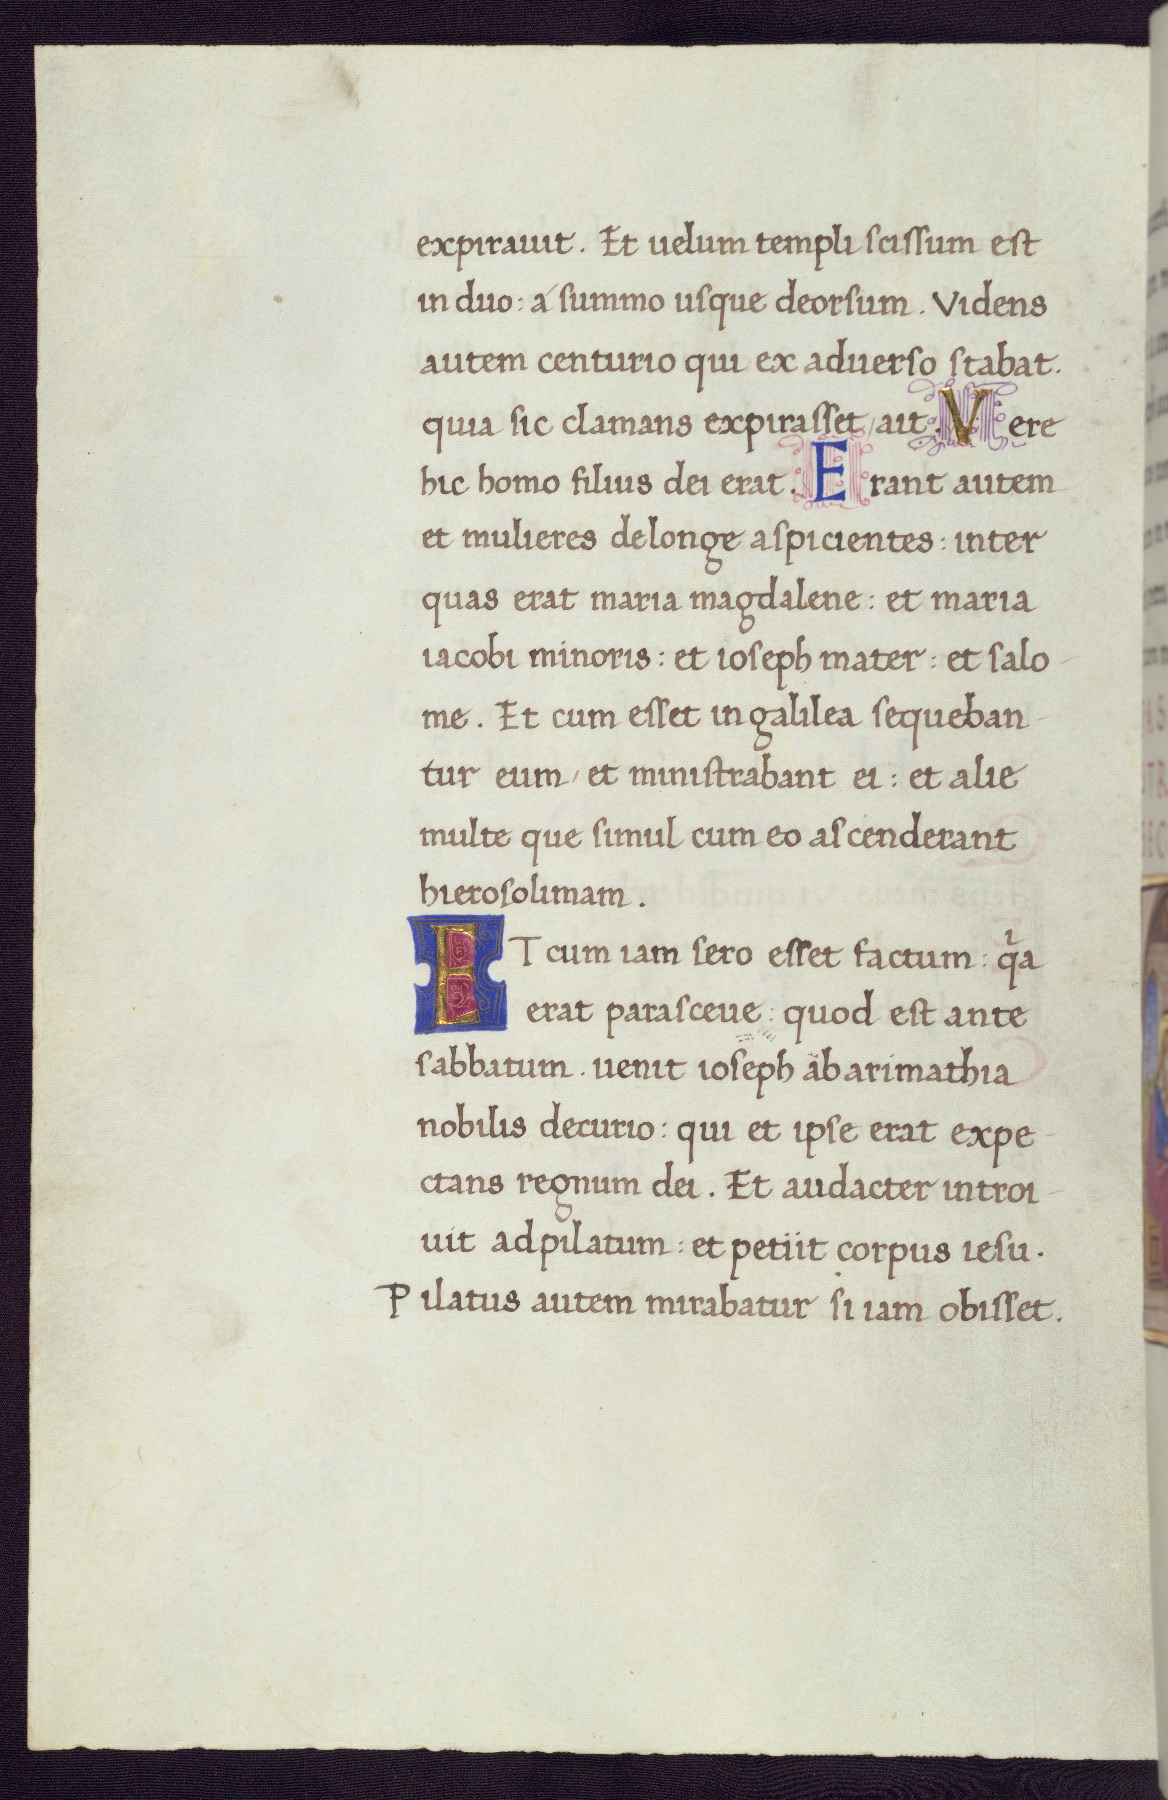 expirauit. Et uelum templi scissum est
in duo: a summo usque deorsum. Videns
autem centurio qui ex aduerso stabat.
quia sic clamans expirasset, ait. Vere
hic homo filius dei erat. Erant autem
et mulieres delonge aspicientes: inter
quas erat maria magdalene: et maria
iacobi minoris: et ioseph mater: et salo
me. Et cum esset in galilea sequeban
tur eum, et ministrabant ei: et alie
multe que simul cum eo ascenderant
hierosolimam.
ET cum iam sero esset factum: qia
erat parasceue: quod est ante
sabbatum. uenit ioseph ab arimathia
nobilis decurio: qui et ipse erat expe
ctans regnum dei. Et audacter introi
uit ad pilatum: et petiit corpus iesu.
Pilatus autem mirabatur si iam obisset.